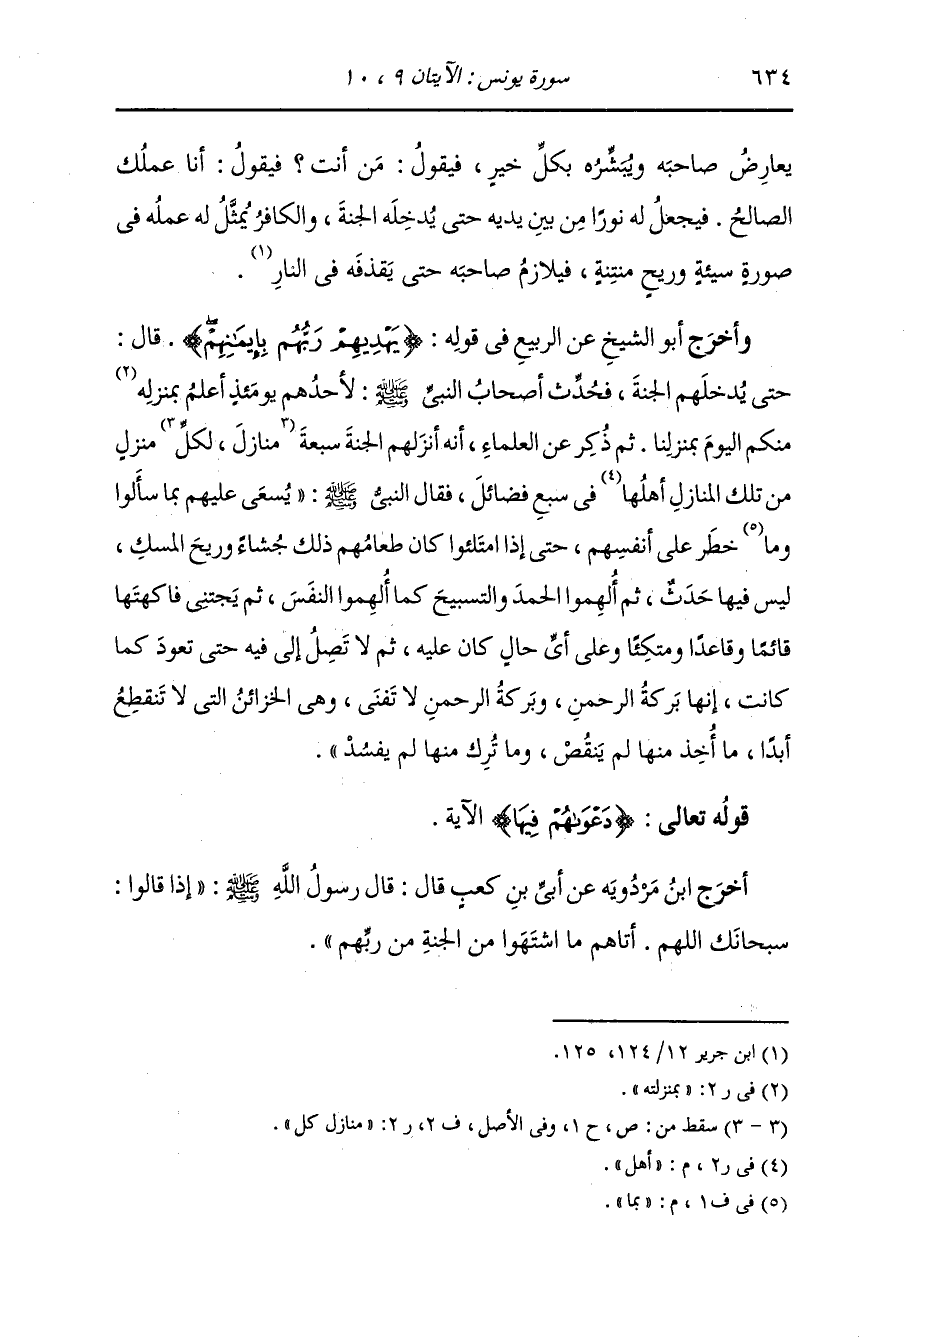 ٦٣٤ سورة يونس : الآيتان ٩ ، ١٠
يعارِضُ صاحبَه ويُبَشِّرُه بكلِّ خيرٍ ، فيقولُ : مَن أنت ؟ فيقولُ : أنا عملُك
الصالحُ . فيجعلُ له نورًا مِن بينِ يديه حتى يُدخِلَه الجنةَ ، والكافرُ يُمثَّلُ له عملُه فى
صورةٍ سيئةٍ وريحٍ منتِنةٍ ، فيلازمُ صاحبَه حتى يَقذفَه فى النارِ(١) .
وأخرَج أبو الشيخِ عن الربيعِ فى قولِه : ﴿يَهْدِيهِمْ رَبُّهُم بِإِيمَٰنِهِمْۖ﴾ . قال :
حتى يُدخلَهم الجنةَ ، فحُدِّث أصحابُ النبىِّ ﷺ : لأحدُهم يومَئذٍ أعلمُ بمنزلِه(٢)
منكم اليومَ بمنزلِنا . ثم ذُكِر عن العلماءِ ، أنه أنزَلهم الجنةَ سبعةَ (٣منازلَ ، لكلِّ٣) منزلٍ
من تلك المنازلِ أهلُها(٤) فى سبعِ فضائلَ ، فقال النبىُّ ﷺ : « يُسعَى عليهم بما سأَلوا
وما(٥) خطَر على أنفسِهم ، حتى إذا امتَلئوا كان طعامُهم ذلك جُشاءً وريحَ المسكِ ،
ليس فيها حَدَثٌ ، ثم أُلهِموا الحمدَ والتسبيحَ كما أُلهِموا النفَسَ ، ثم يَجتنِى فاكهتَها
قائمًا وقاعدًا ومتكِئًا وعلى أىِّ حالٍ كان عليه ، ثم لا تَصِلُ إلى فيه حتى تعودَ كما
كانت ، إنها بَركةُ الرحمنِ ، وبَركةُ الرحمنِ لا تَفنَى ، وهى الخزائنُ التى لا تَنقطِعُ
أبدًا ، ما أُخِذ منها لم يَنقُصْ ، وما تُرِك منها لم يفسُدْ » .
قولُه تعالى : ﴿دَعْوَىٰهُمْ فِيهَا﴾ الآية .
أخرَج ابنُ مَرْدُويَه عن أبىِّ بنِ كعبٍ قال : قال رسولُ اللَّهِ ﷺ : « إذا قالوا :
سبحانَك اللهم . أتاهم ما اشتَهَوا من الجنةِ من ربِّهم » .
(١) ابن جرير ١٢/ ١٢٤، ١٢٥.
(٢) فى ر ٢: « بمنزلته » .
(٣ - ٣) سقط من : ص ، ح ١، وفى الأصل ، ف ٢، ر ٢: « منازل كل » .
(٤) فى ر٢ ، م : « أهل » .
(٥) فى ف١ ، م : « بما » .